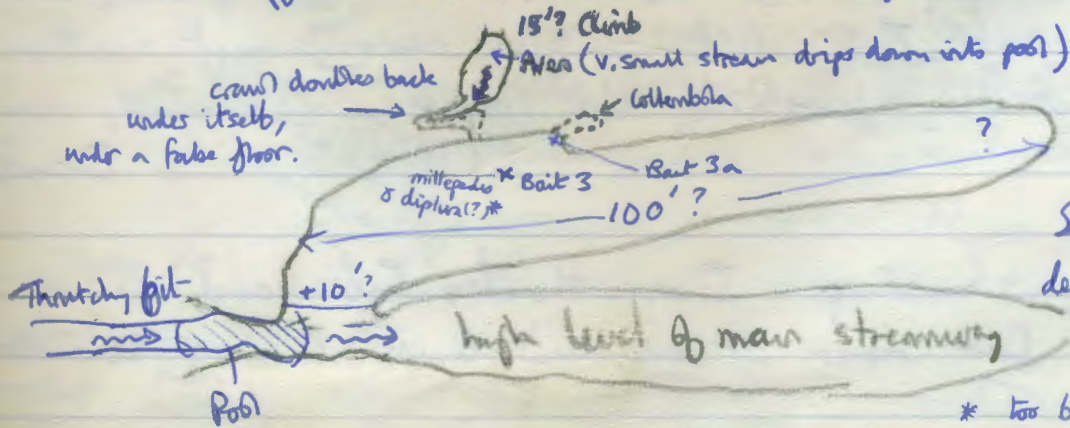 15'? Climb
Aven (v. small stream drips down into pool)
crawl doubles back
under itself,
under a false floor.
Collembola
?
millepedes * Bait 3
& diplura(?) *
Bait 3a
100' ?
S
Thrutchy bit
+10'?
de
high level of main streamway
Pool
* too b